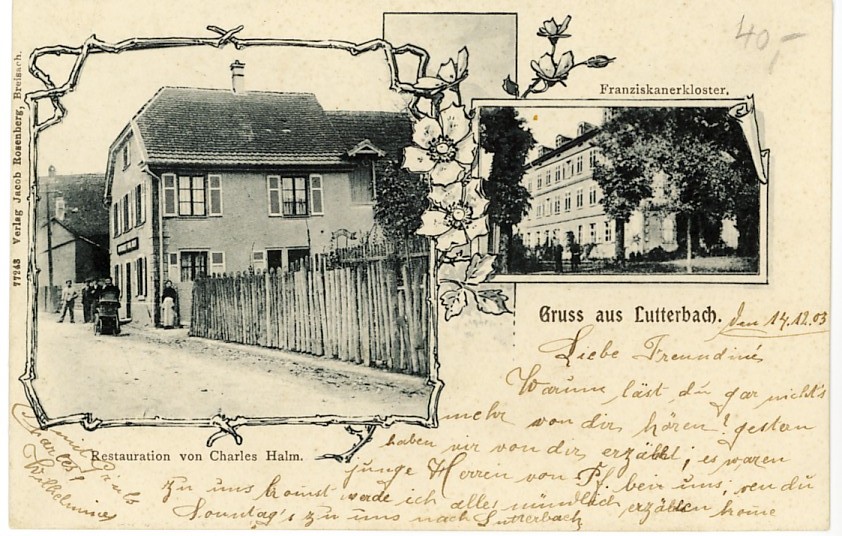 40,-
Franziskanerkloster.
77243 Verlag Jacob Rosenberg, Breisach.
Gruss aus Lutterbach.
den 14.12.03
Liebe Freundine
Warume läst du gar nicht's
mehr von dir hören! gestern
haben wir von dir erzählt, es waren
junge Herren von Pf. bei uns, wen du
zu uns komst werde ich alles mündlich erzählen kome
Sonntag's zu uns nach Lutterbach
Restauration von Charles Halm.
Charles
Wilhelmine